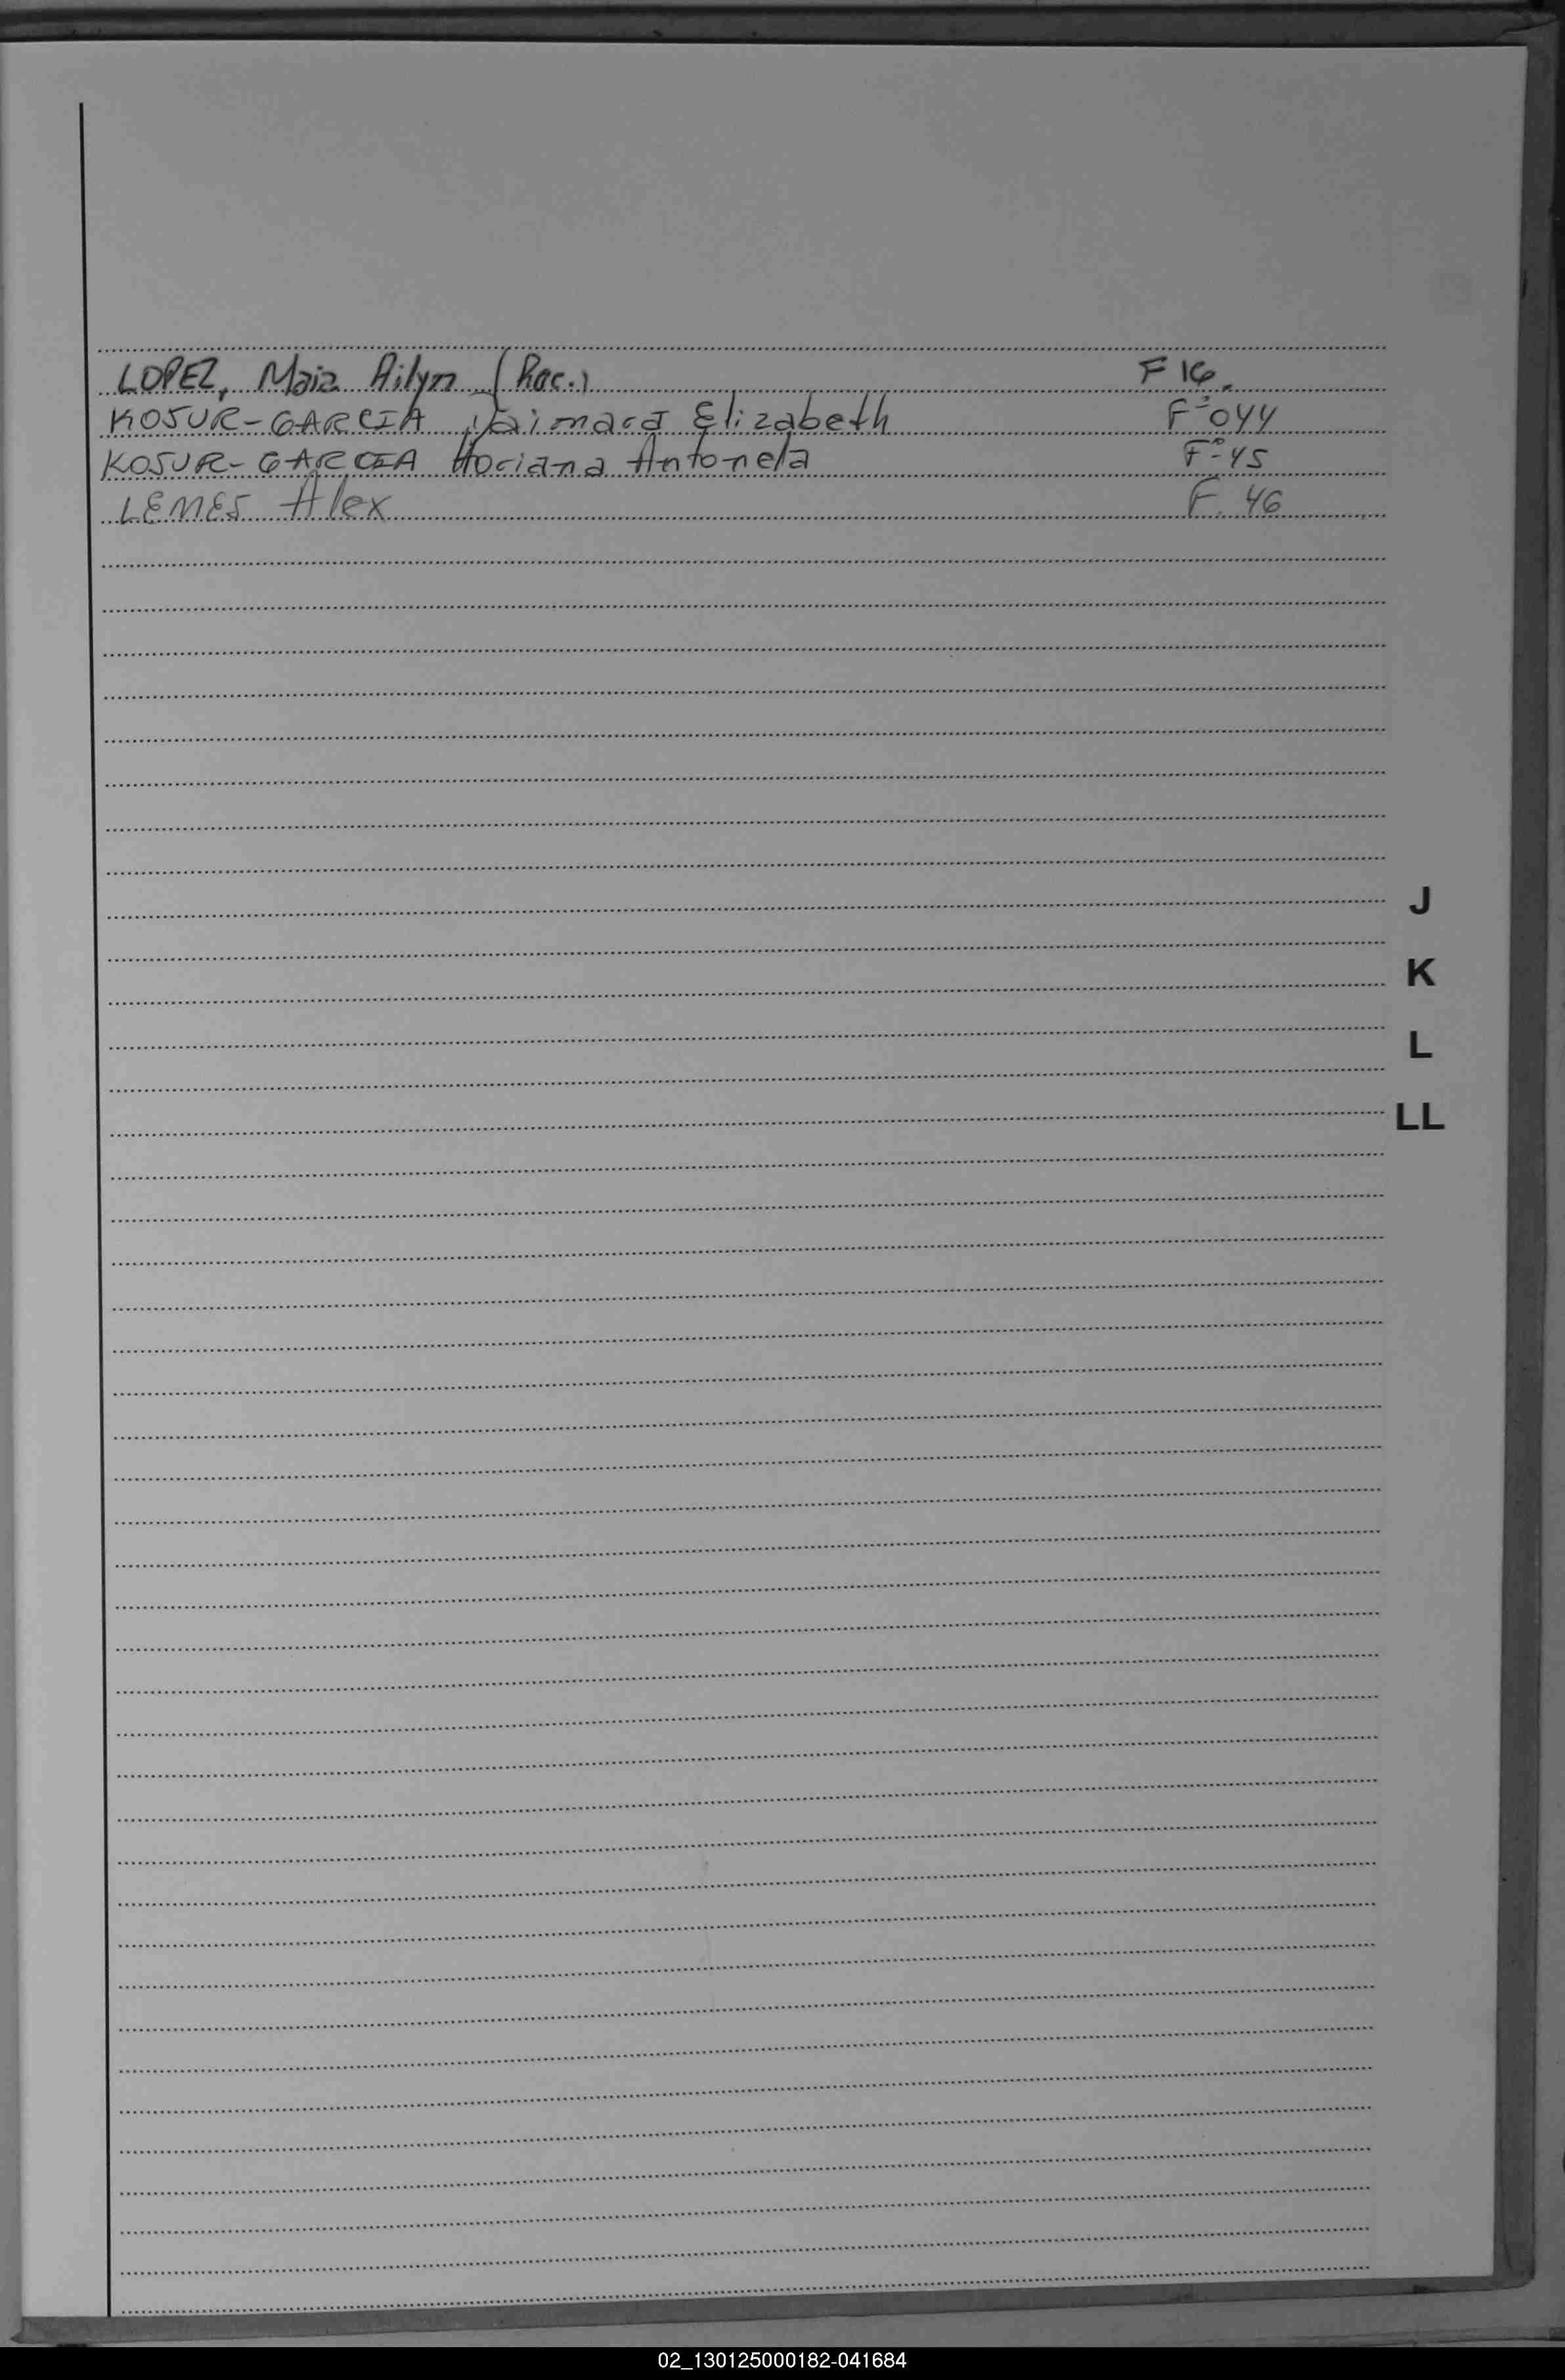 LOPEZ, Maia Ailyn (Rac.) F 16.
KOSUR-GARCIA Yaimara Elizabeth Fº 044
KOSUR-GARCIA Antonela Fº 45
LEMES Alex F. 46
J
K
L
LL
02_130125000182-041684